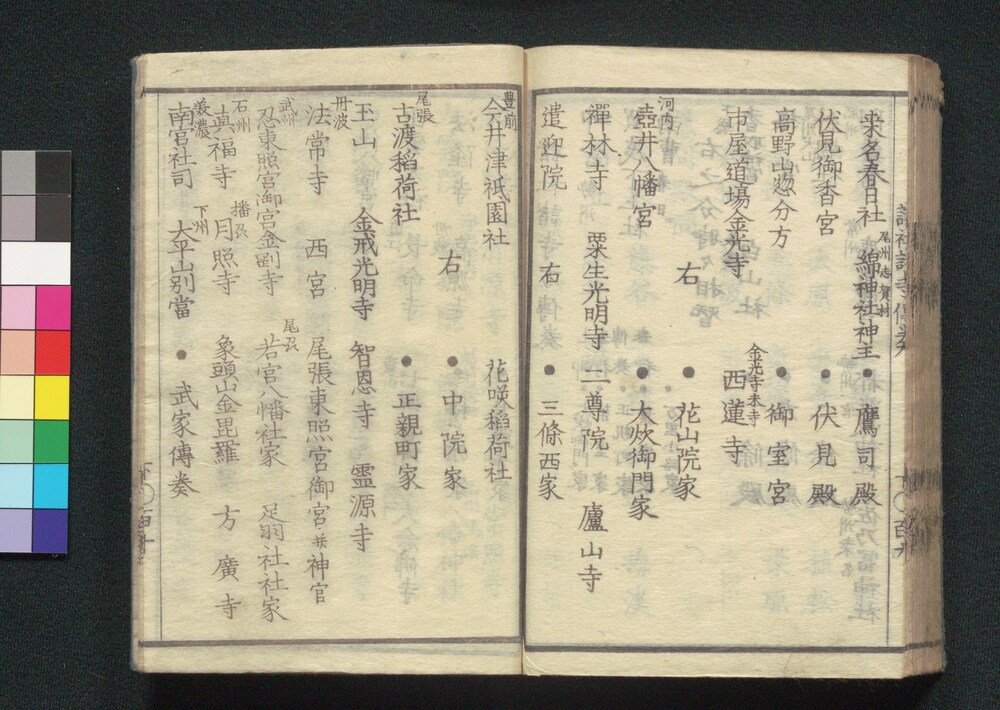 桒名春日社 尾州志賀村 綿神社神主 ● 鷹司殿
伏見御香宮 ● 伏見殿
高野山惣分方 ● 御室宮
市屋道場金光寺 金光寺末寺 西蓮寺
右 ● 花山院家
河内 壺井八幡宮 ● 大炊御門家
禪林寺 粟生光明寺 二尊院 廬山寺
遣迎院 右 ● 三條西家
豊前 今井津祇園社 花咲稲荷社
右 ● 中院家
尾張 古渡稲荷社 ● 正親町家
玉山 金戒光明寺 智恩寺 靈源寺
丹波 法常寺 西宮 尾張東照宮御宮并神官
武州 忍東照宮御宮金剛寺 尾弖 若宮八幡社家 足羽社社家
石州 真福寺 播弖 月照寺 象頭山金毘羅 方廣寺
美濃 南宮社司 下州 大平山別當 ● 武家傳奏